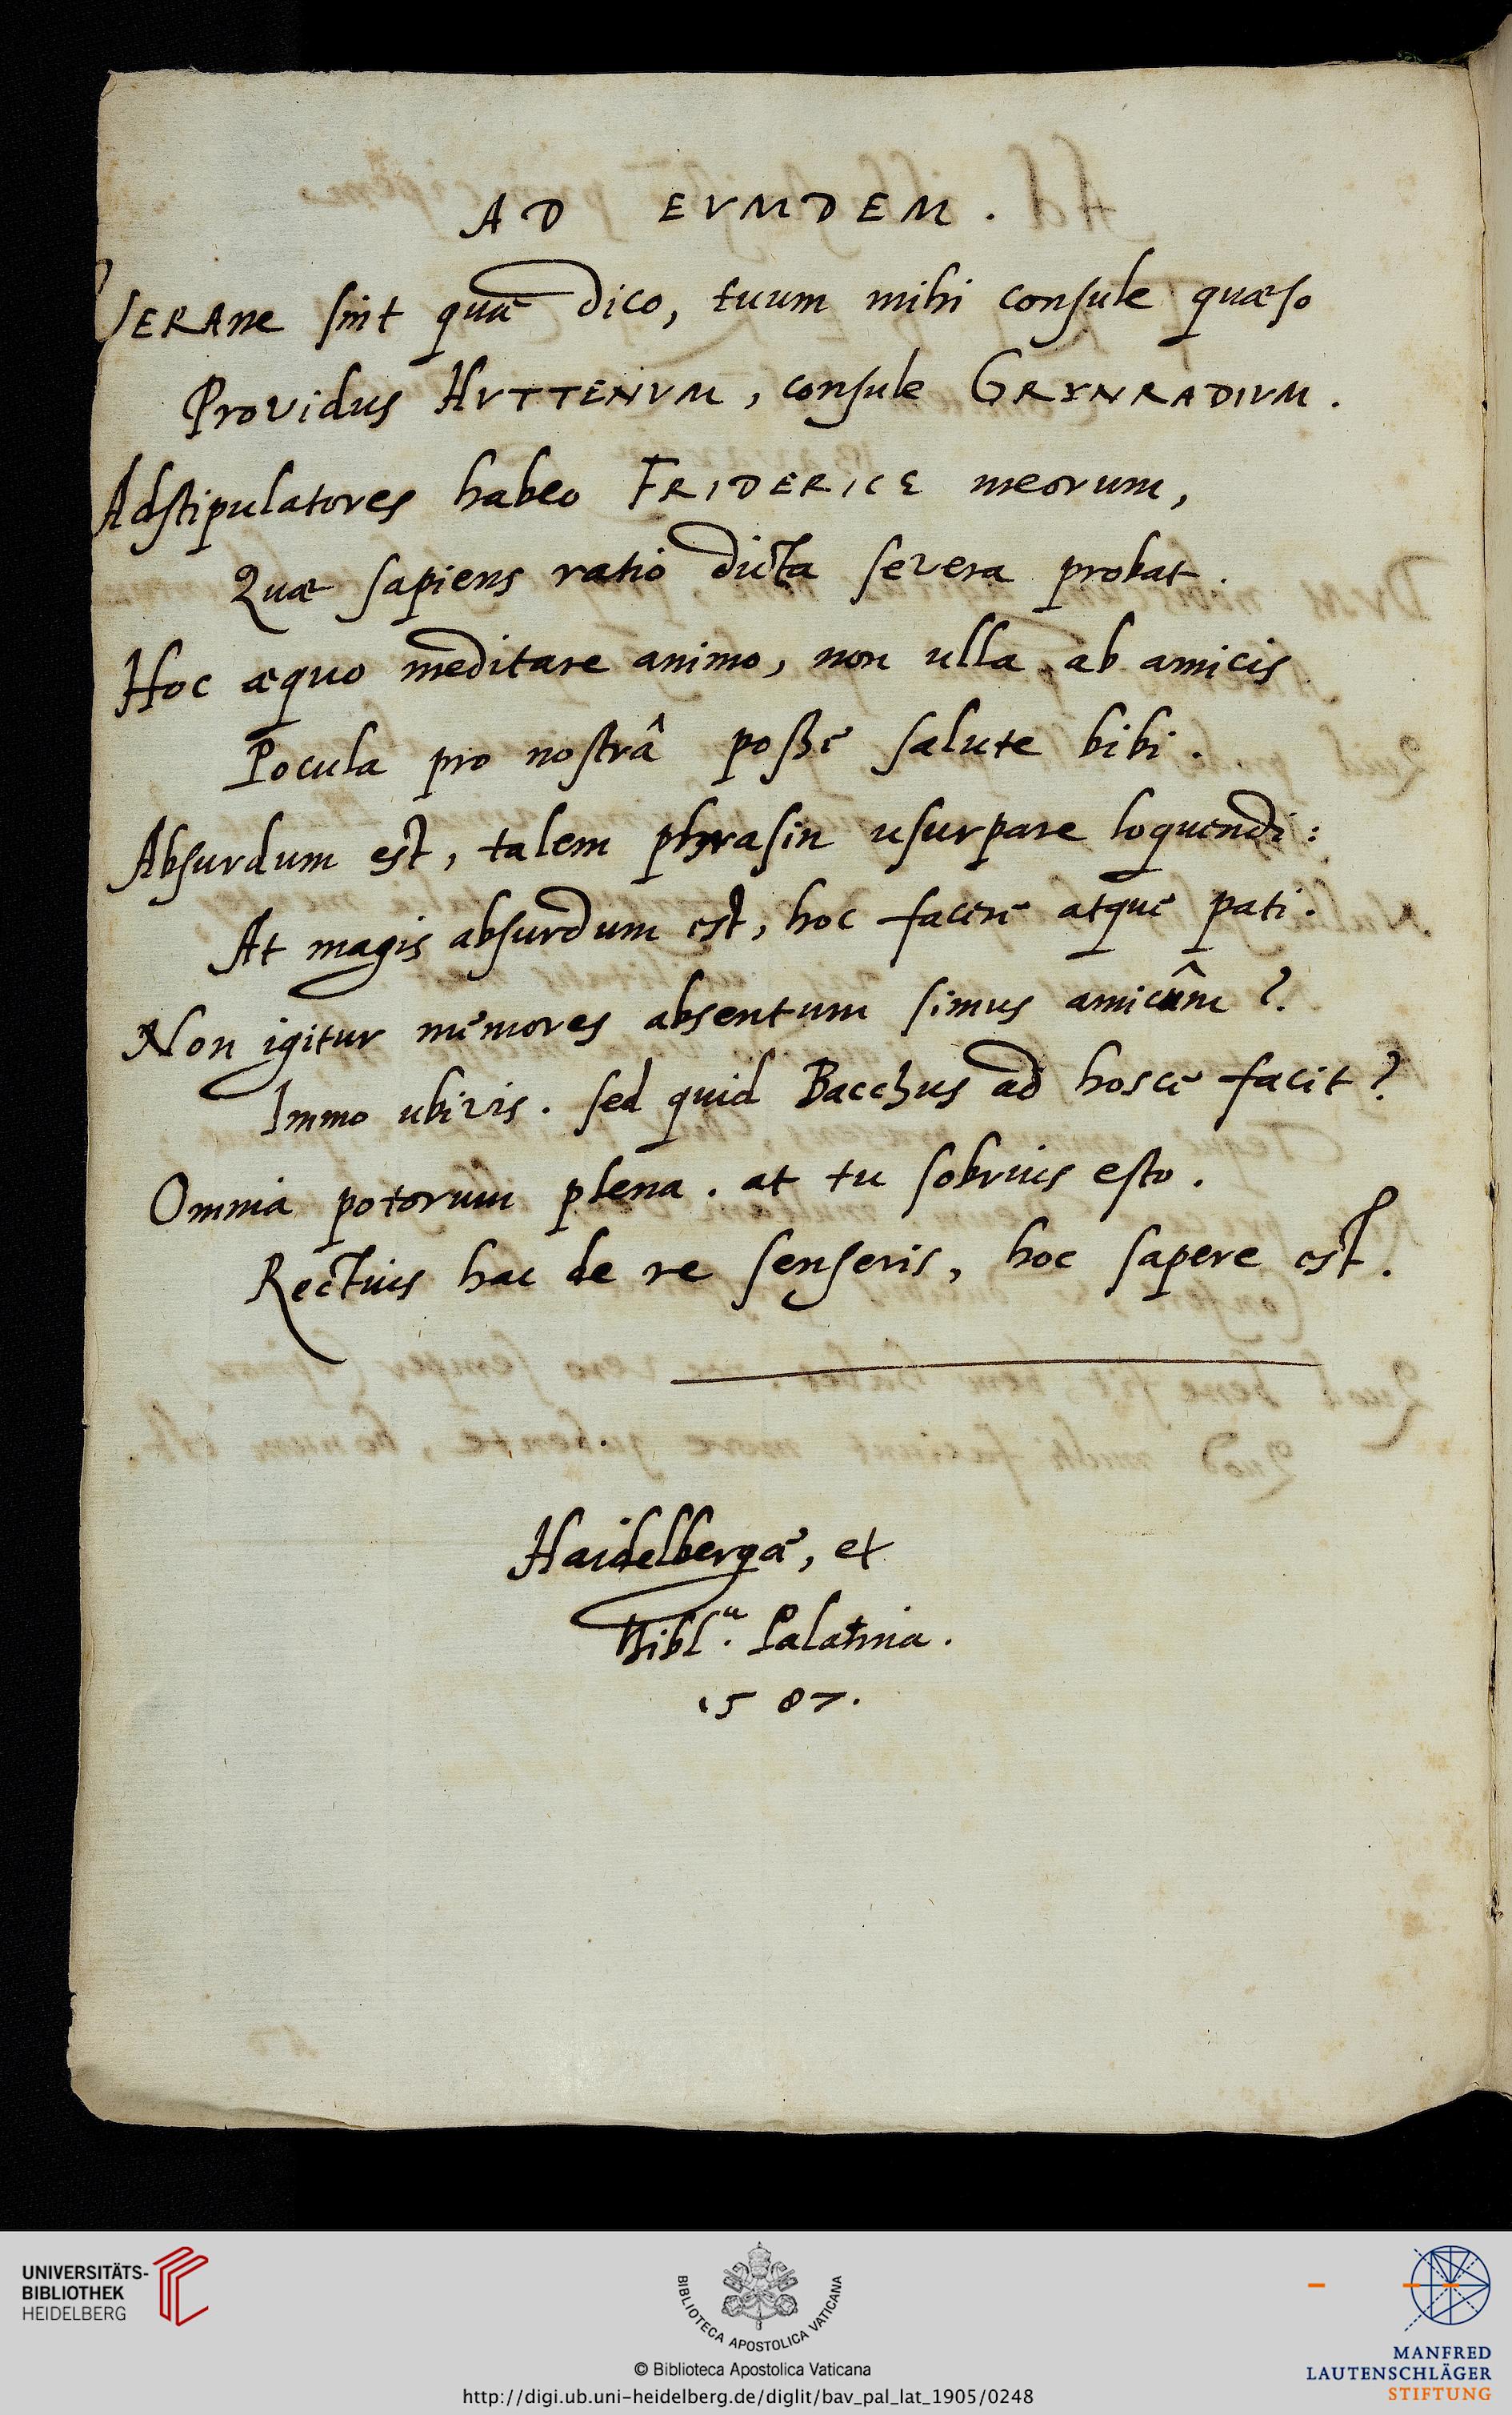 AD EVMDEM.
VERAne sint quæ dico, tuum mihi consule quæso
Providus HVTTENVM, consule GRYNRADIVM.
Adstipulatores habeo FRIDERICE meorum,
Quæ sapiens ratio dicta severa probat.
Hoc æquo meditare animo, non ulla ab amicis
Pocula pro nostrâ poße salute bibi.
Absurdum est, talem phrasin usurpare loquendi:
At magis absurdum est, hoc facere atque pati.
Non igitur memores absentum simus amicûm?
Immo ubivis. sed quid Bacchus ad hosce facit?
Omnia potorum plena. at tu sobrius esto.
Rectius hac de re senseris, hoc sapere est.
Haidelbergæ, et
Bibl.ᵃ Palatina.
1587.
UNIVERSITÄTS-
BIBLIOTHEK
HEIDELBERG
BIBLIOTECA APOSTOLICA VATICANA
© Biblioteca Apostolica Vaticana
http://digi.ub.uni-heidelberg.de/diglit/bav_pal_lat_1905/0248
MANFRED
LAUTENSCHLÄGER
STIFTUNG